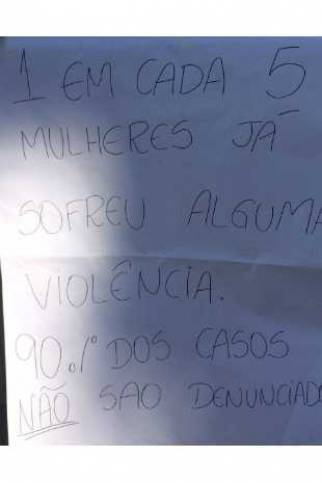 1 EM CADA 5
MULHERES JÁ
SOFREU ALGUMA
VIOLÊNCIA.
90% DOS CASOS
NÃO SAO DENUNCIADO